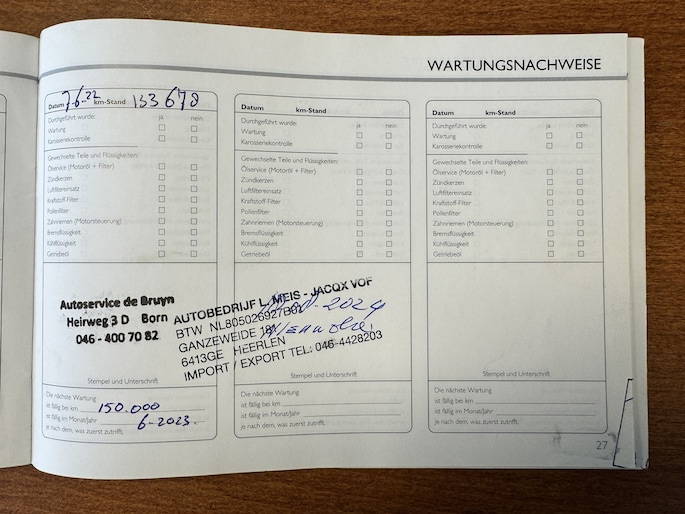 WARTUNGSNACHWEISE
Datum 7-6-22 km-Stand 133678
Durchgeführt wurde: ja nein
Wartung
Karosseriekontrolle
Gewechselte Teile und Flüssigkeiten:
Ölservice (Motoröl + Filter)
Zündkerzen
Luftfiltereinsatz
Kraftstoff-Filter
Pollenfilter
Zahnriemen (Motorsteuerung)
Bremsflüssigkeit
Kühlflüssigkeit
Getriebeöl
Autoservice de Bruyn
Heirweg 3 D Born
046 - 400 70 82
Stempel und Unterschrift
Die nächste Wartung
ist fällig bei km 150.000
ist fällig im Monat/Jahr 6-2023.
je nach dem, was zuerst zutrifft.
Datum km-Stand
Durchgeführt wurde: ja nein
Wartung
Karosseriekontrolle
Gewechselte Teile und Flüssigkeiten:
Ölservice (Motoröl + Filter)
Zündkerzen
Luftfiltereinsatz
Kraftstoff-Filter
Pollenfilter
Zahnriemen (Motorsteuerung)
Bremsflüssigkeit
Kühlflüssigkeit
Getriebeöl
AUTOBEDRIJF L. MEIS - JACQX VOF
BTW NL805026927B01
GANZEWEIDE 181
6413GE HEERLEN
IMPORT / EXPORT TEL: 046-4428203
2024
Stempel und Unterschrift
Die nächste Wartung
ist fällig bei km
ist fällig im Monat/Jahr
je nach dem, was zuerst zutrifft.
Datum km-Stand
Durchgeführt wurde: ja nein
Wartung
Karosseriekontrolle
Gewechselte Teile und Flüssigkeiten:
Ölservice (Motoröl + Filter)
Zündkerzen
Luftfiltereinsatz
Kraftstoff-Filter
Pollenfilter
Zahnriemen (Motorsteuerung)
Bremsflüssigkeit
Kühlflüssigkeit
Getriebeöl
Stempel und Unterschrift
Die nächste Wartung
ist fällig bei km
ist fällig im Monat/Jahr
je nach dem, was zuerst zutrifft.
27